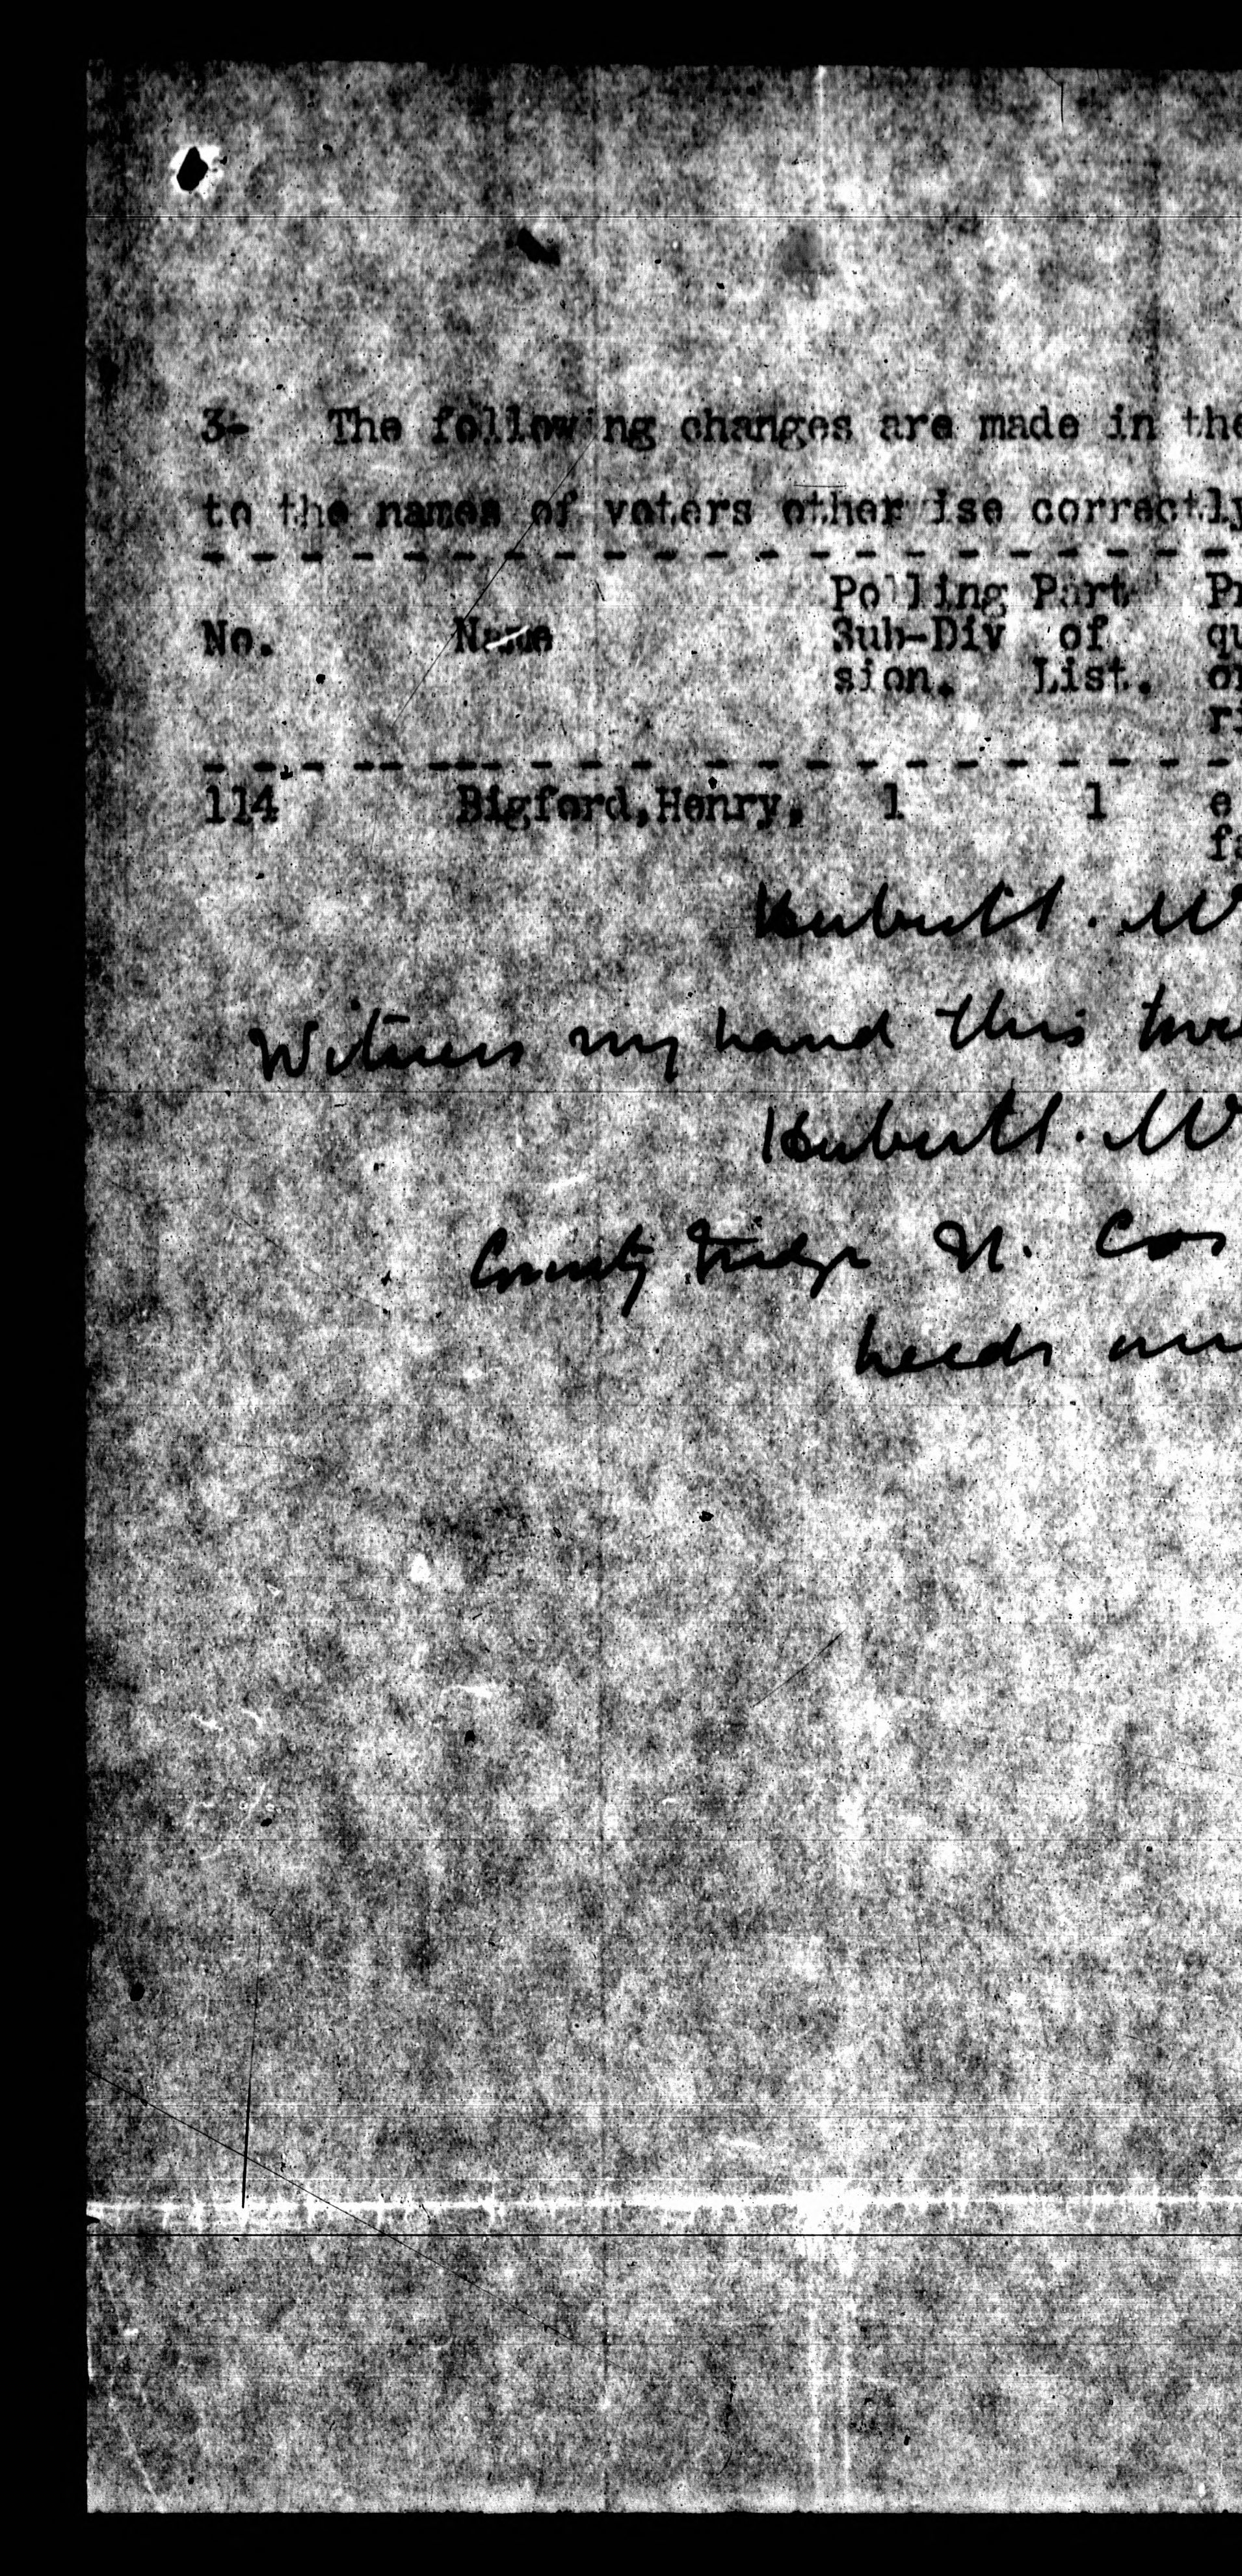 3- The following changes are made in the
to the names of voters otherwise correctly
Polling Part Pr
No. Name Sub-Div of qu
sion. List. or
ri
114 Bigford,Henry, 1 1 e
fa
W
Witness my hand this twe
W
County Judge U. Cos
Leeds an